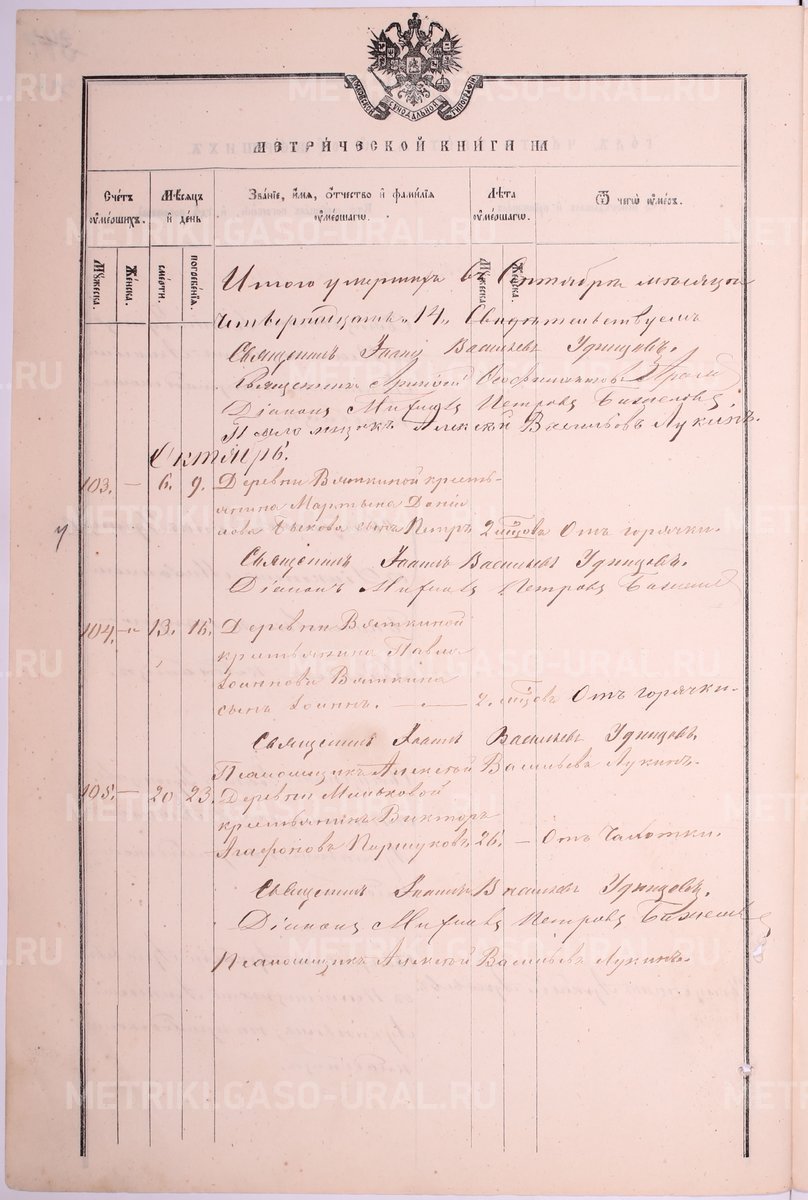 МОСКОВСКОЙ СѴНОДАЛЬНОЙ ТИПОГРАФІИ
МЕТРИ́ЧЕСКОЙ КНИ́ГИ НА
Счетъ ᲂу҆ме́ршихъ.
Мѣсяцъ и҆ день
Зва́нїе, и҆́мя, ѻ҆́тчество и҆ фами́лїя ᲂу҆ме́ршагѡ.
Лѣта ᲂу҆ме́ршагѡ.
Ѿ чегѡ̀ ᲂу҆́меръ.
Мꙋжеска. Женска. сме́рти. погребе́нїя. Мꙋжеска. Женска.
Итого умершихъ въ Сентябрѣ мѣсяцѣ
четырнадцать „14„ Свидѣтельствуемъ
Священникъ Іоаннъ Васильевъ Удинцовъ.
Священникъ
Діаконъ Михаилъ Петровъ
Псаломщикъ Алексѣй Васильевъ Лукинъ.
Октябрь.
103. — 6. 9. Деревни Вяткиной кресть-
янина Мартына Даніи
лова Быкова сынъ Петръ 2 мѣсяцовъ Отъ горячки.
Священникъ Іоаннъ Васильевъ Удинцовъ.
Діаконъ Михаилъ Петровъ
104. — 13. 16. Деревни Вяткиной
крестьянина Павла
Іоаннова Вяткина
сынъ Іоаннъ. — 2. мѣсяцовъ Отъ горячки.
Священникъ Іоаннъ Васильевъ Удинцовъ.
Псаломщикъ Алексѣй Васильевъ Лукинъ.
105. — 20 23. Деревни Миньковой
крестьянинъ Викторъ
Агафоновъ Паршуковъ 26. — Отъ чахотки.
Священникъ Іоаннъ Васильевъ Удинцовъ.
Діаконъ Михаилъ Петровъ
Псаломщикъ Алексѣй Васильевъ Лукинъ.
METRIKI.GASO-URAL.RU